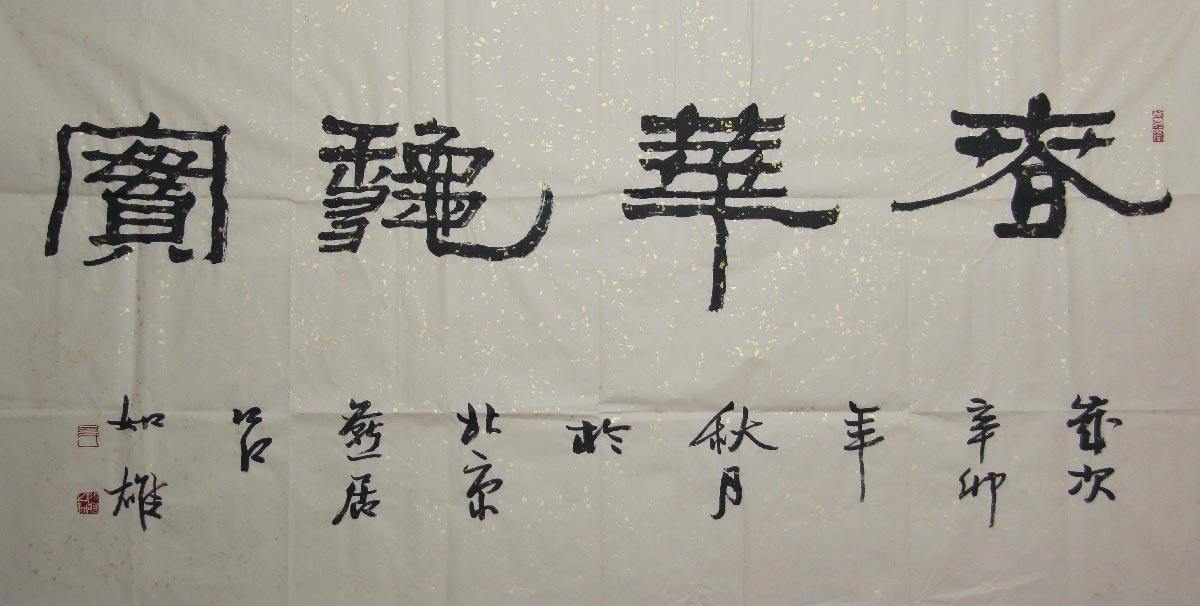 春華龝實
歲次
辛卯
年
秋月
於
北京
燕居
呂
如雄